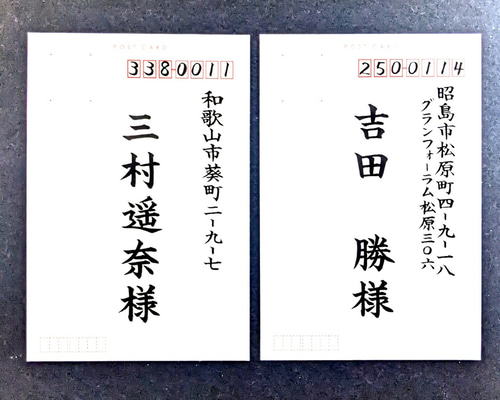 POST CARD
338-0011
和歌山市葵町二-九-七
三村遥奈様
POST CARD
250-0114
昭島市松原町四-九-一八
グランフォーラム松原三〇六
吉田 勝様